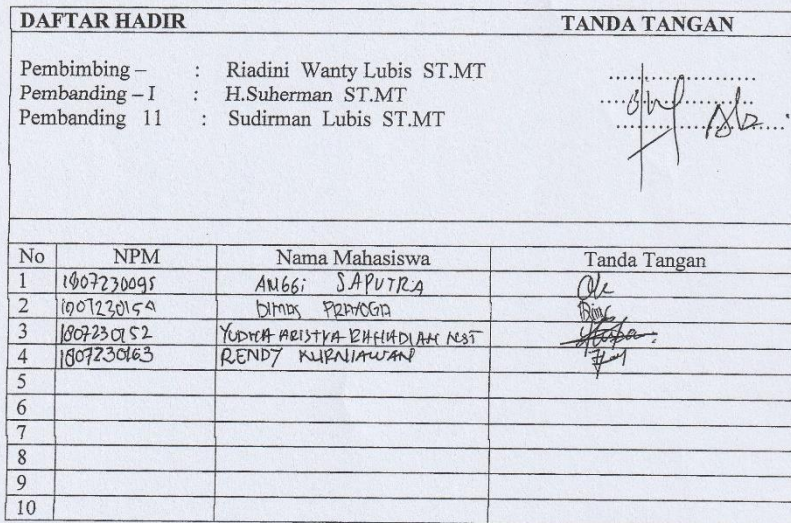 DAFTAR HADIR TANDA TANGAN
Pembimbing – : Riadini Wanty Lubis ST.MT
Pembanding – I : H.Suherman ST.MT
Pembanding 11 : Sudirman Lubis ST.MT
No NPM Nama Mahasiswa Tanda Tangan
1 1807230095 ANGGi SAPUTRA
2 1807230154 DIMAS PRAYOGA
3 1807230152 YUDHA ARISTYA RAHADIAN NST
4 1807230163 RENDY KURNIAWAN
5
6
7
8
9
10